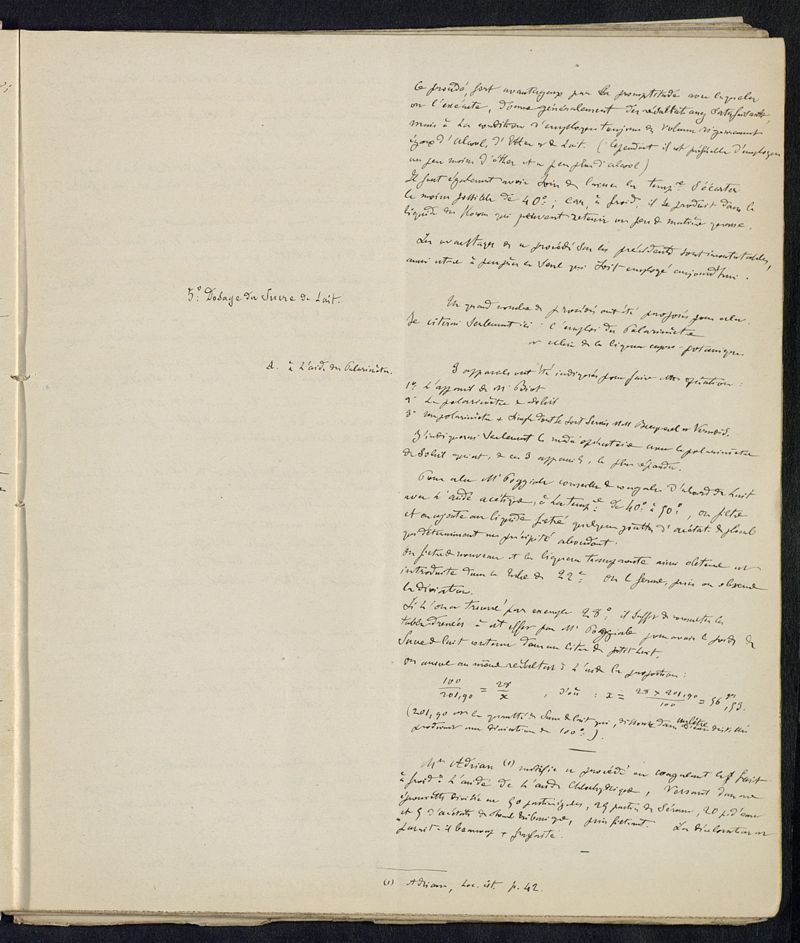 Ce procédé, fort avantageux par la promptitude avec laquelle
on l'exécute, donne généralement des résultats assez satisfaisants,
mais à la condition d'employer toujours des volumes rigoureusement
égaux d'Alcool, d'Ether et de Lait. (Cependant il est préférable d'employer
un peu moins d'éther et un peu plus d'alcool)
Il faut également avoir soin de laisser la temp.re s'écarter
le moins possible de 40°; car, à froid, il se produit dans le
liquide des flocons qui peuvent retenir un peu de matière grasse.
Les avantages de ce procédé sur les précédents sont incontestables,
aussi est-ce à peu près le seul qui soit employé aujourd'hui.
5° Dosage du Sucre de Lait.
Un grand nombre de procédés ont été proposés pour cela.
Je citerai seulement ici : l'emploi du Polarimètre
et celui de la liqueur cupro-potassique.
A. à l'aide du Polarimètre.
3 appareils ont été indiqués pour faire cette opération :
1° L'appareil de Mr Biot
2° Le polarimètre de Soleil
3° Un polarimètre + simple dont se sont servis MM Becquerel et Vernois.
J'indiquerai seulement le mode opératoire avec le polarimètre
de Soleil qui est, de ces 3 appareils, le plus répandu.
Pour cela Mr Poggiale conseille de coaguler d'abord le Lait
avec l'acide acétique, à la temp.re de 40° à 50°, on filtre
et on ajoute au liquide filtré quelques gouttes d'acétate de plomb
qui déterminent un précipité abondant.
On filtre de nouveau et la liqueur transparente ainsi obtenue est
introduite dans le tube de 22c. On le ferme, puis on observe
la déviation.
Si l'on a trouvé par exemple 28°, il suffit de consulter les
tables dressées à cet effet par Mr Poggiale pour avoir le poids de
Sucre de lait contenu dans un litre de petit lait.
On arrive au même résultat à l'aide de la proportion :
100/201,90 = 28/x , d'où : x = 28 × 201,90/100 = 56gr,53.
(201,90 est la quantité de Sucre de lait qui, dissoute dans un litre d'eau distillée
produirait une déviation de 100°.)
Mr Adrian (1) modifie ce procédé en coagulant le lait
à froid à l'aide de l'acide Chlorhydrique, versant dans une
éprouvette divisée en 50 parties égales, 25 parties de Sérum, 20 p. d'eau
et 5 d'acétate de plomb tribasique, puis filtrant. La décoloration est
paraît-il beaucoup + parfaite.
(1) Adrian, Loc. cit. p. 42.